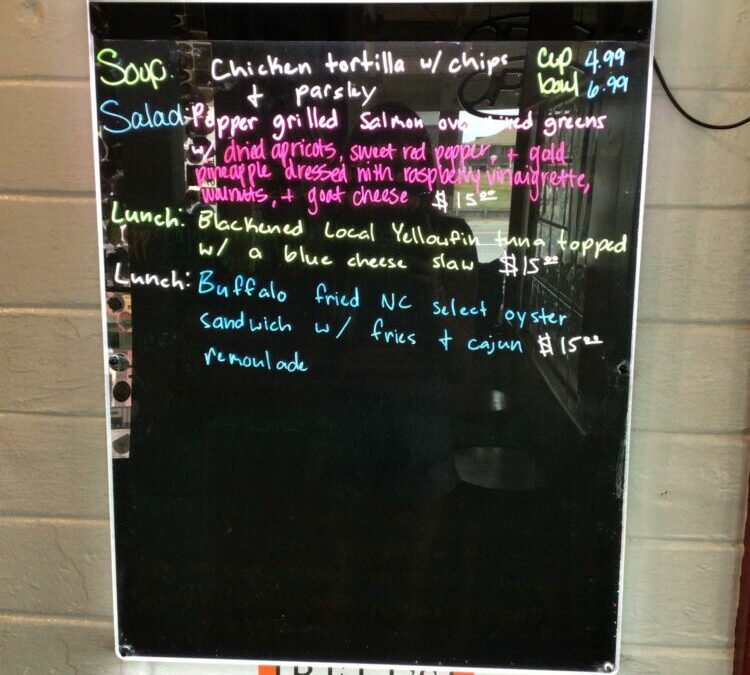 Soup: Chicken tortilla w/ chips cup 4.99
+ parsley bowl 6.99
Salad: Pepper grilled Salmon over mixed greens
w/ dried apricots, sweet red pepper, + gold
pineapple dressed with raspberry vinaigrette,
walnuts, + goat cheese $15.00
Lunch: Blackened Local Yellowfin tuna topped
w/ a blue cheese slaw $15.00
Lunch: Buffalo fried NC select oyster
sandwich w/ fries + cajun $15.00
remoulade